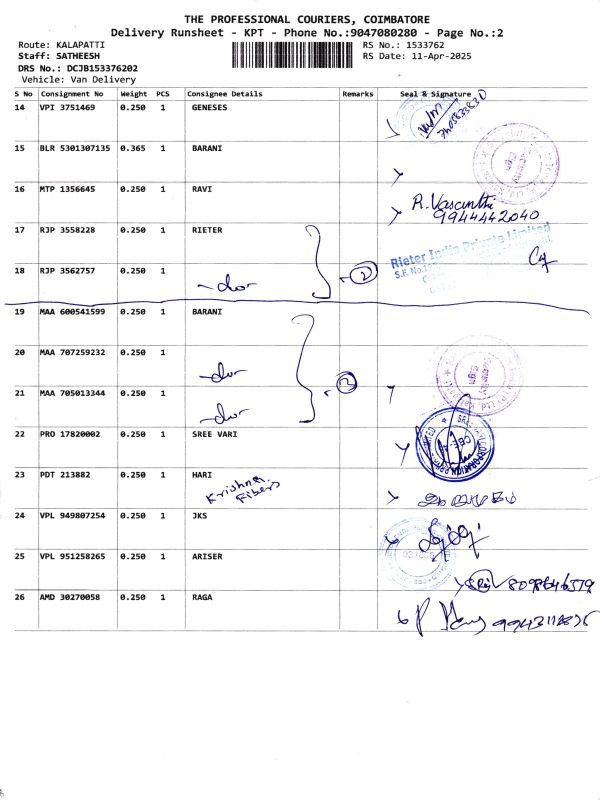 THE PROFESSIONAL COURIERS, COIMBATORE
Delivery Runsheet - KPT - Phone No.:9047080280 - Page No.:2
Route: KALAPATTI
RS No.: 1533762
Staff: SATHEESH
RS Date: 11-Apr-2025
DRS No.: DCJB153376202
Vehicle: Van Delivery
S No Consignment No Weight PCS Consignee Details Remarks Seal & Signature
14 VPI 3751469 0.250 1 GENESES
15 BLR 5301307135 0.365 1 BARANI
16 MTP 1356645 0.250 1 RAVI
R. Vasanthi
9944442040
17 RJP 3558228 0.250 1 RIETER
Rieter India Private Limited
18 RJP 3562757 0.250 1
-do-
2
19 MAA 600541599 0.250 1 BARANI
20 MAA 707259232 0.250 1
-do-
21 MAA 705013344 0.250 1
-do-
22 PRO 17820002 0.250 1 SREE VARI
23 PDT 213882 0.250 1 HARI
Krishna
Fibers
24 VPL 949807254 0.250 1 JKS
25 VPL 951258265 0.250 1 ARISER
26 AMD 30270058 0.250 1 RAGA